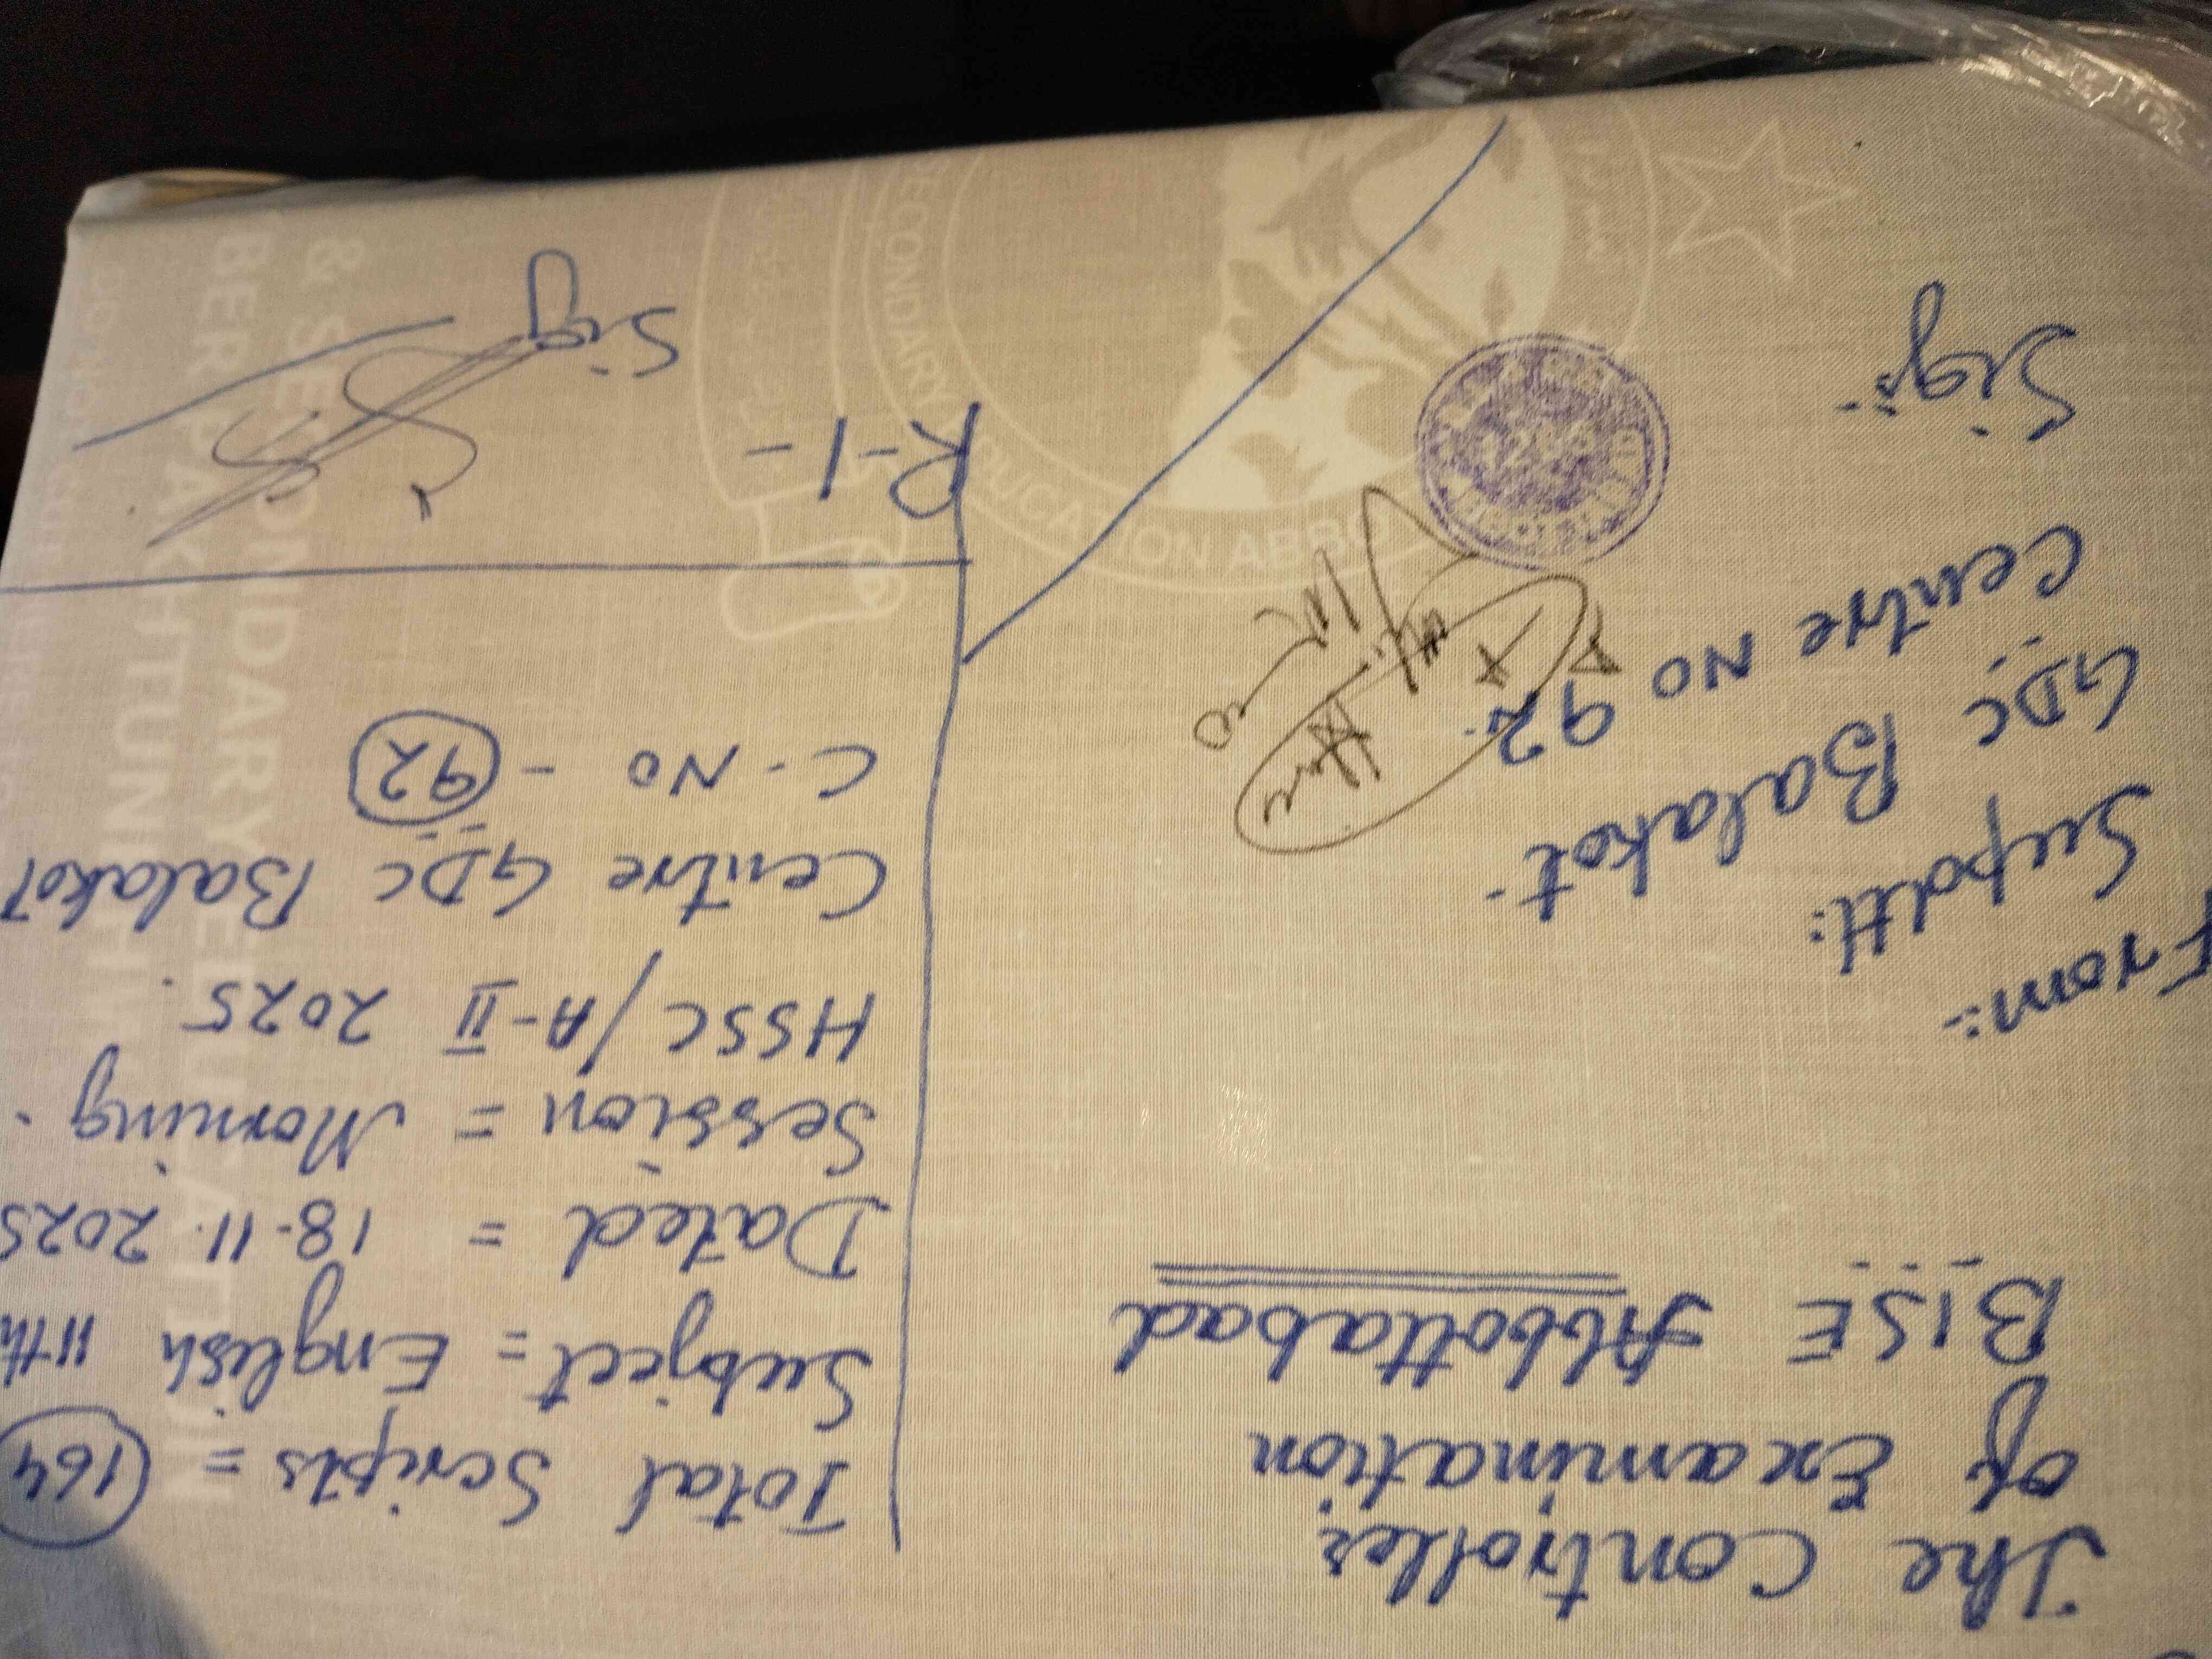 The Controller
of Examination
BISE Abbottabad
From:-
Supdtt:
GDC Balakot.
Centre No 92.
Sig:-
Total Scripts = 164
Subject = English 11th
Dated = 18.11.2025
Session = Morning.
HSSC/A-II 2025.
Centre GDC Balakot
C-No - 92
R-1-
Sig
ECONDARY EDUCATION ABBO
& SECONDARY EDUCATION
BER PAKHTUNKH